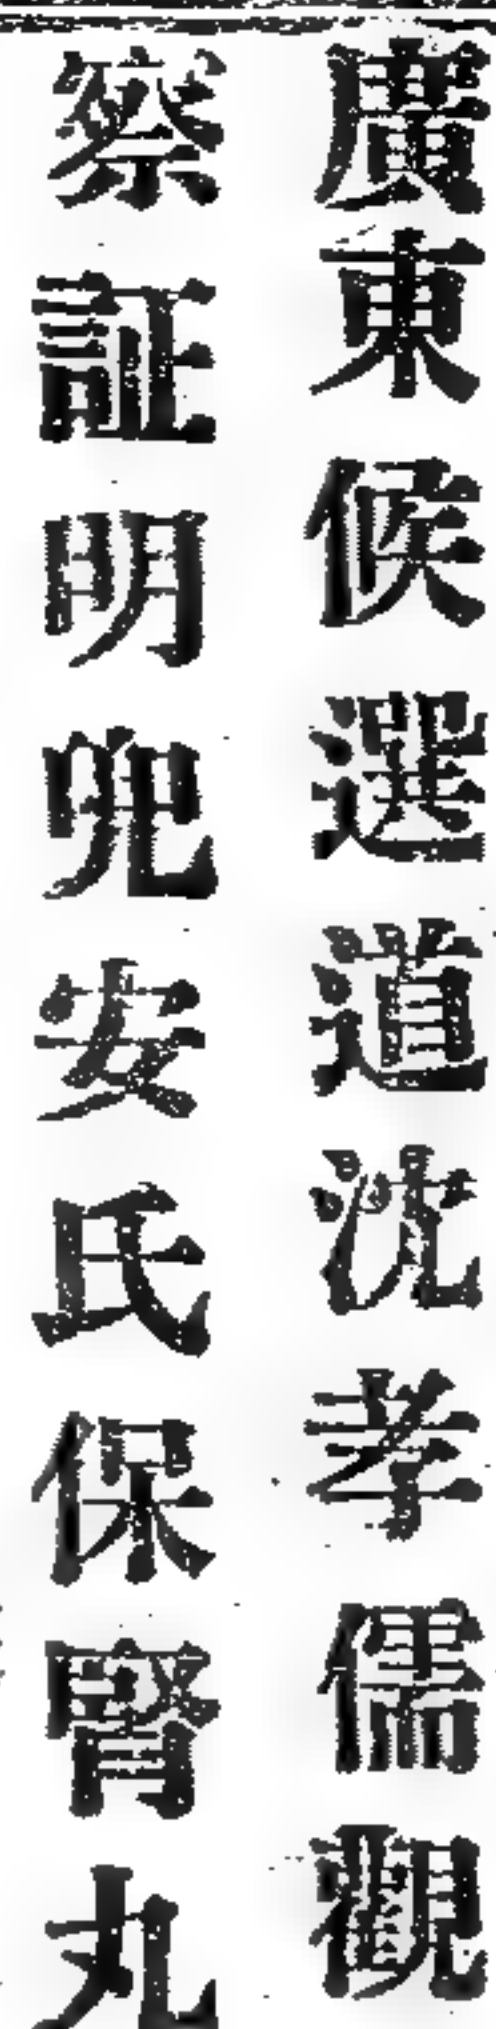 廣東候選道沈孝儒觀
察証明兜安氏保腎丸